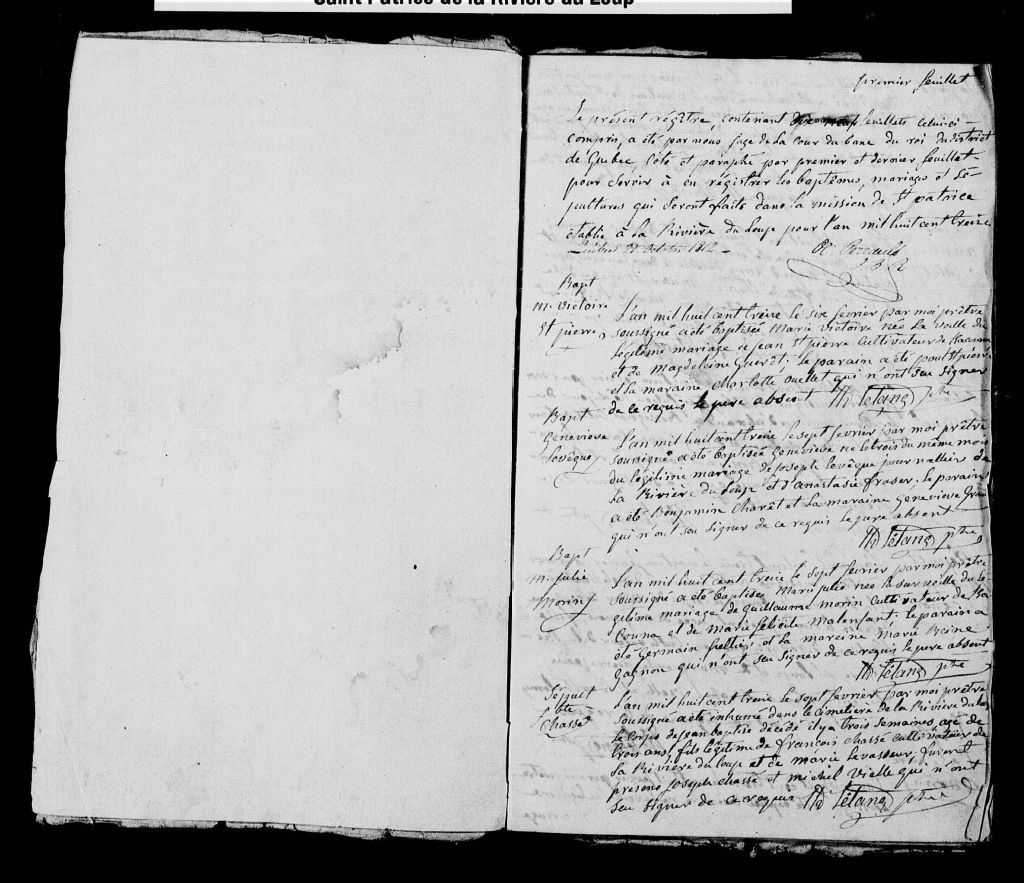 Saint Patrice de la Rivière du Loup
premier feuillet
Le présent régître, contenant feuillets celui ci
compris, a été par nous juge de la cour du banc du roi du district
de Quebec, côté et paraphé par premier et dernier feuillet
pour servir à en régistrer les baptêmes, mariages et sé
pultures qui seront faits dans la mission de St patrice
établie à la Rivière du Loup pour l'an mil huit cent treize
Québec 21 Octobre 1812
Bapt
M. Victoire
St pierre
L'an mil huit cent treize le six fevrier par moi prêtre
soussigné a été baptisée Marie Victoire née la veille du
légitime mariage de jean St pierre cultivateur de Kacouna
et de Magdeleine Gueret. le parain a été paul St pierre
et la maraine Charlotte Ouellet qui n'ont seu signer
de ce requis le pere absent Th Letang ptre
Bapt
Genevieve
Levêque
L'an mil huit cent treize le sept fevrier par moi prêtre
soussigné a été baptisée Genevieve née le trois du même mois
du légitime mariage de Joseph Levêque journallier de
la Rivière du Loup et d'anastasie fraser. le parain
a été Benjamin Charêt et la maraine Genevieve
qui n'ont seu signer de ce requis le pere absent
Th Letang ptre
Bapt
M. julie
Morin
L'an mil huit cent treize le sept fevrier par moi prêtre
soussigné a été baptisée Marie julie née la surveille du lé
gitime mariage de guillaume morin cultivateur de Ka
couna et de Marie felicité Malenfant. le parain a
été Germain pelletier et la mareine Marie Reine
gagnon qui n'ont seu signer de ce requis le pere absent
Th Letang ptre
Sépult
bte
Chassé
L'an mil huit cent treize le sept fevrier par moi prêtre
soussigné a été inhumé dans le cimetiere de la Riviere du loup
le corps de jean baptise décédé il y a trois semaines, agé de
trois ans, fils légitime de francois chassé cultivateur de
la Rivière du loup et de marie levasseur. furent
presens joseph chassé et michel Vielle qui n'ont
seu signer de ce requis Th Letang ptre